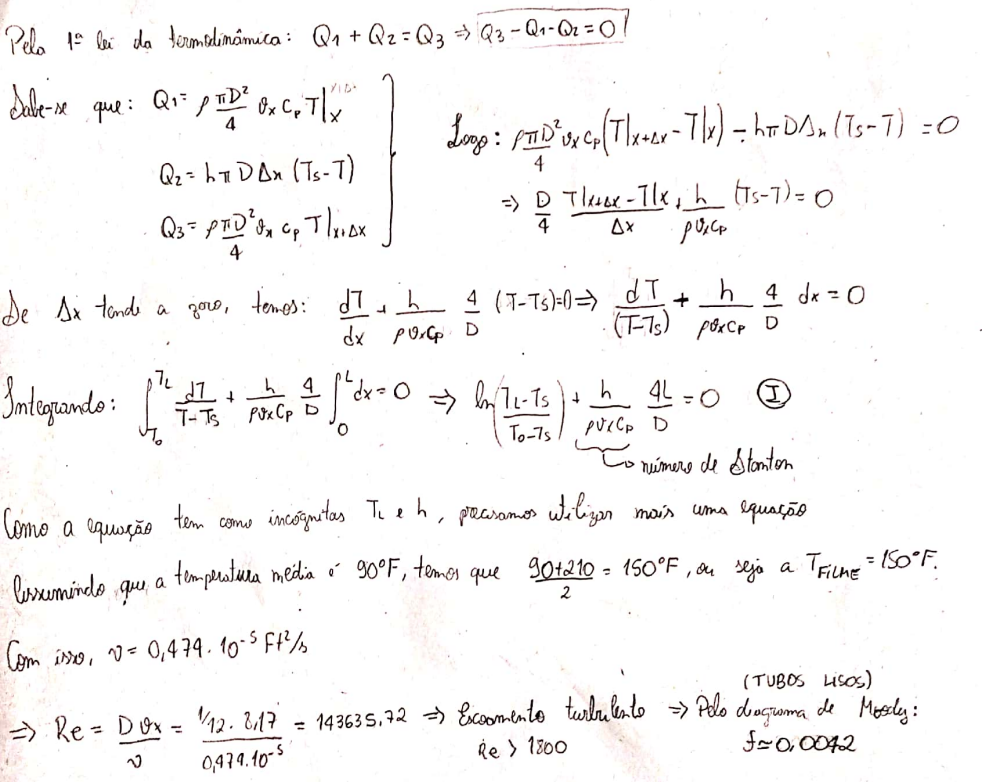 Pela 1ª lei da termodinâmica: Q1 + Q2 = Q3 ⇒ Q3 - Q1 - Q2 = 0
Sabe-se que: Q1 = ρ πD²/4 υx Cp T|x
Q2 = h π D Δx (Ts - T)
Q3 = ρ πD²/4 υx Cp T|x+Δx
Logo: ρπD²/4 υx Cp (T|x+Δx - T|x) - hπDΔx (Ts-T) = 0
⇒ D/4 T|x+Δx - T|x/Δx + h/ρυxCp (Ts-T) = 0
Se Δx tende a zero, temos: dT/dx + h/ρυxCp 4/D (T-Ts)=0 ⇒ dT/(T-Ts) + h/ρυxCp 4/D dx = 0
Integrando: ∫To^TL dT/T-Ts + h/ρυxCp 4/D ∫0^L dx = 0 ⇒ ln(TL-Ts/To-Ts) + h/ρυxCp 4L/D = 0 (I)
↳ número de Stanton
Como a equação tem como incógnitas TL e h, precisamos utilizar mais uma equação
Assumindo que a temperatura média é 90°F, temos que 90+210/2 = 150°F, ou seja a TFILME = 150°F.
Com isso, ν = 0,474. 10⁻⁵ Ft²/s
(TUBOS LISOS)
⇒ Re = Dυx/ν = 1/12 . 8,17/0,474.10⁻⁵ = 143635,72 ⇒ Escoamento turbulento ⇒ Pelo diagrama de Moody:
Re > 1800
f ≃ 0,0042